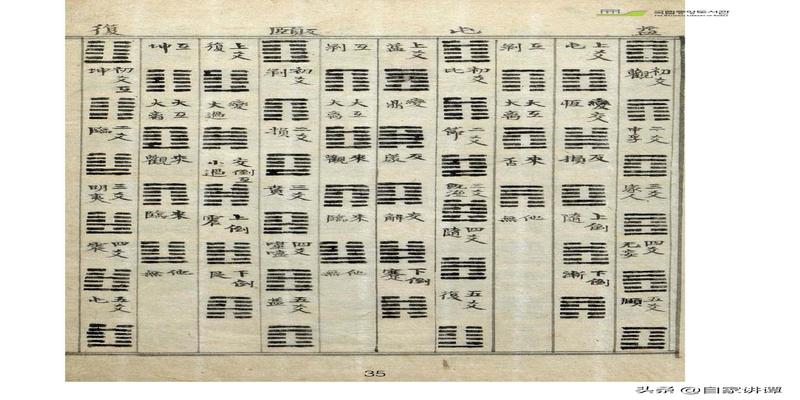 국립중앙도서관
THE NATIONAL LIBRARY OF KOREA
益
初爻 觀
二爻 中孚
三爻 家人
四爻 无妄
五爻 頤
上爻 屯
變交 恒
反 損
上倒 隨
下倒 漸
互 剝
大互 大离
來 否
他 無
屯
初爻 比
二爻 節
三爻 既濟
四爻 隨
五爻 復
上爻 益
變 鼎
反 蒙
交 解
下倒 蹇
互 剝
大互 大离
來 觀
來 臨
他 無
頤
初爻 剝
二爻 損
三爻 賁
四爻 噬嗑
五爻 益
上爻 復
變 大過
交倒互 小過
上倒 震
下倒 艮
互 坤
大互 大离
來 觀
來 臨
他 無
復
初爻互 坤
二爻 臨
三爻 明夷
四爻 震
五爻 屯
35
头条 @自家讲谭